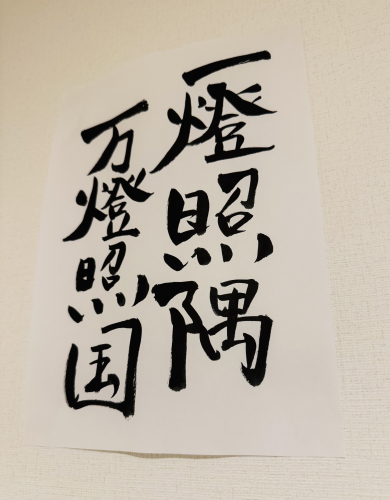 一燈照隅
万燈照国